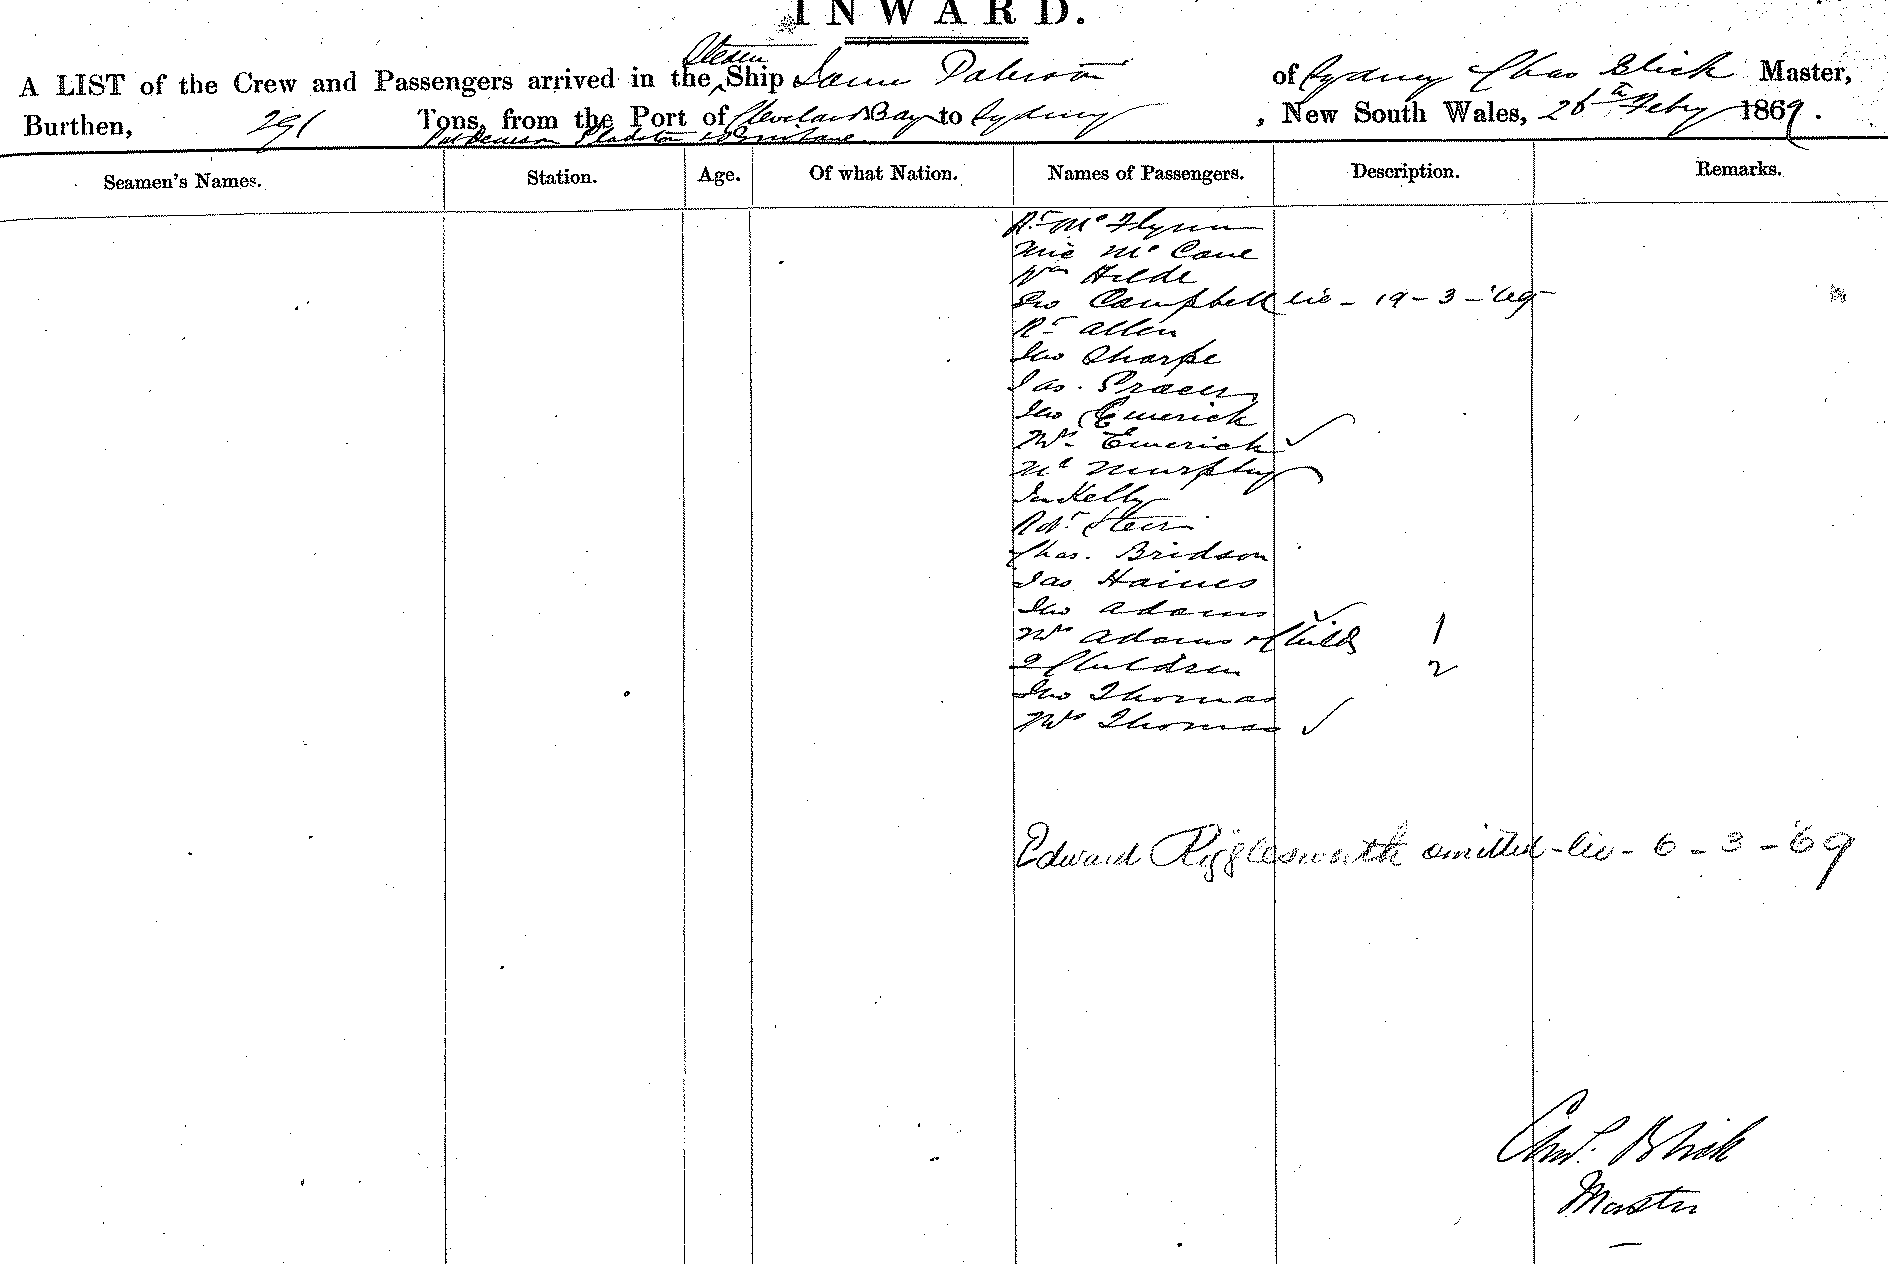 INWARD.
A LIST of the Crew and Passengers arrived in the Steam Ship of Sydney Chas Blick Master,
Burthen, 291 Tons, from the Port of Cleveland Bay to Sydney, New South Wales, 26th Feby 1869.
Port Denison Gladstone & Brisbane
Seamen's Names. Station. Age. Of what Nation. Names of Passengers. Description. Remarks.
Rt Mc Flynn
Mic Mc Cane
Wm Hilde
Jno Campbell lie - 19 - 3 - '69
Rt Allen
Jno Sharpe
Jas.
Jno Emerick
Mrs Emerick
Mc Murphy
Kelly
Robt
Chas. Bridson
Jas Haines
Jno Adams
Mrs Adams & Child 1
2 Children 2
Jno Thomas
Mrs Thomas
Edward Rigglesworth omitted - lie - 6 - 3 - '69
Chas. Blick
Master